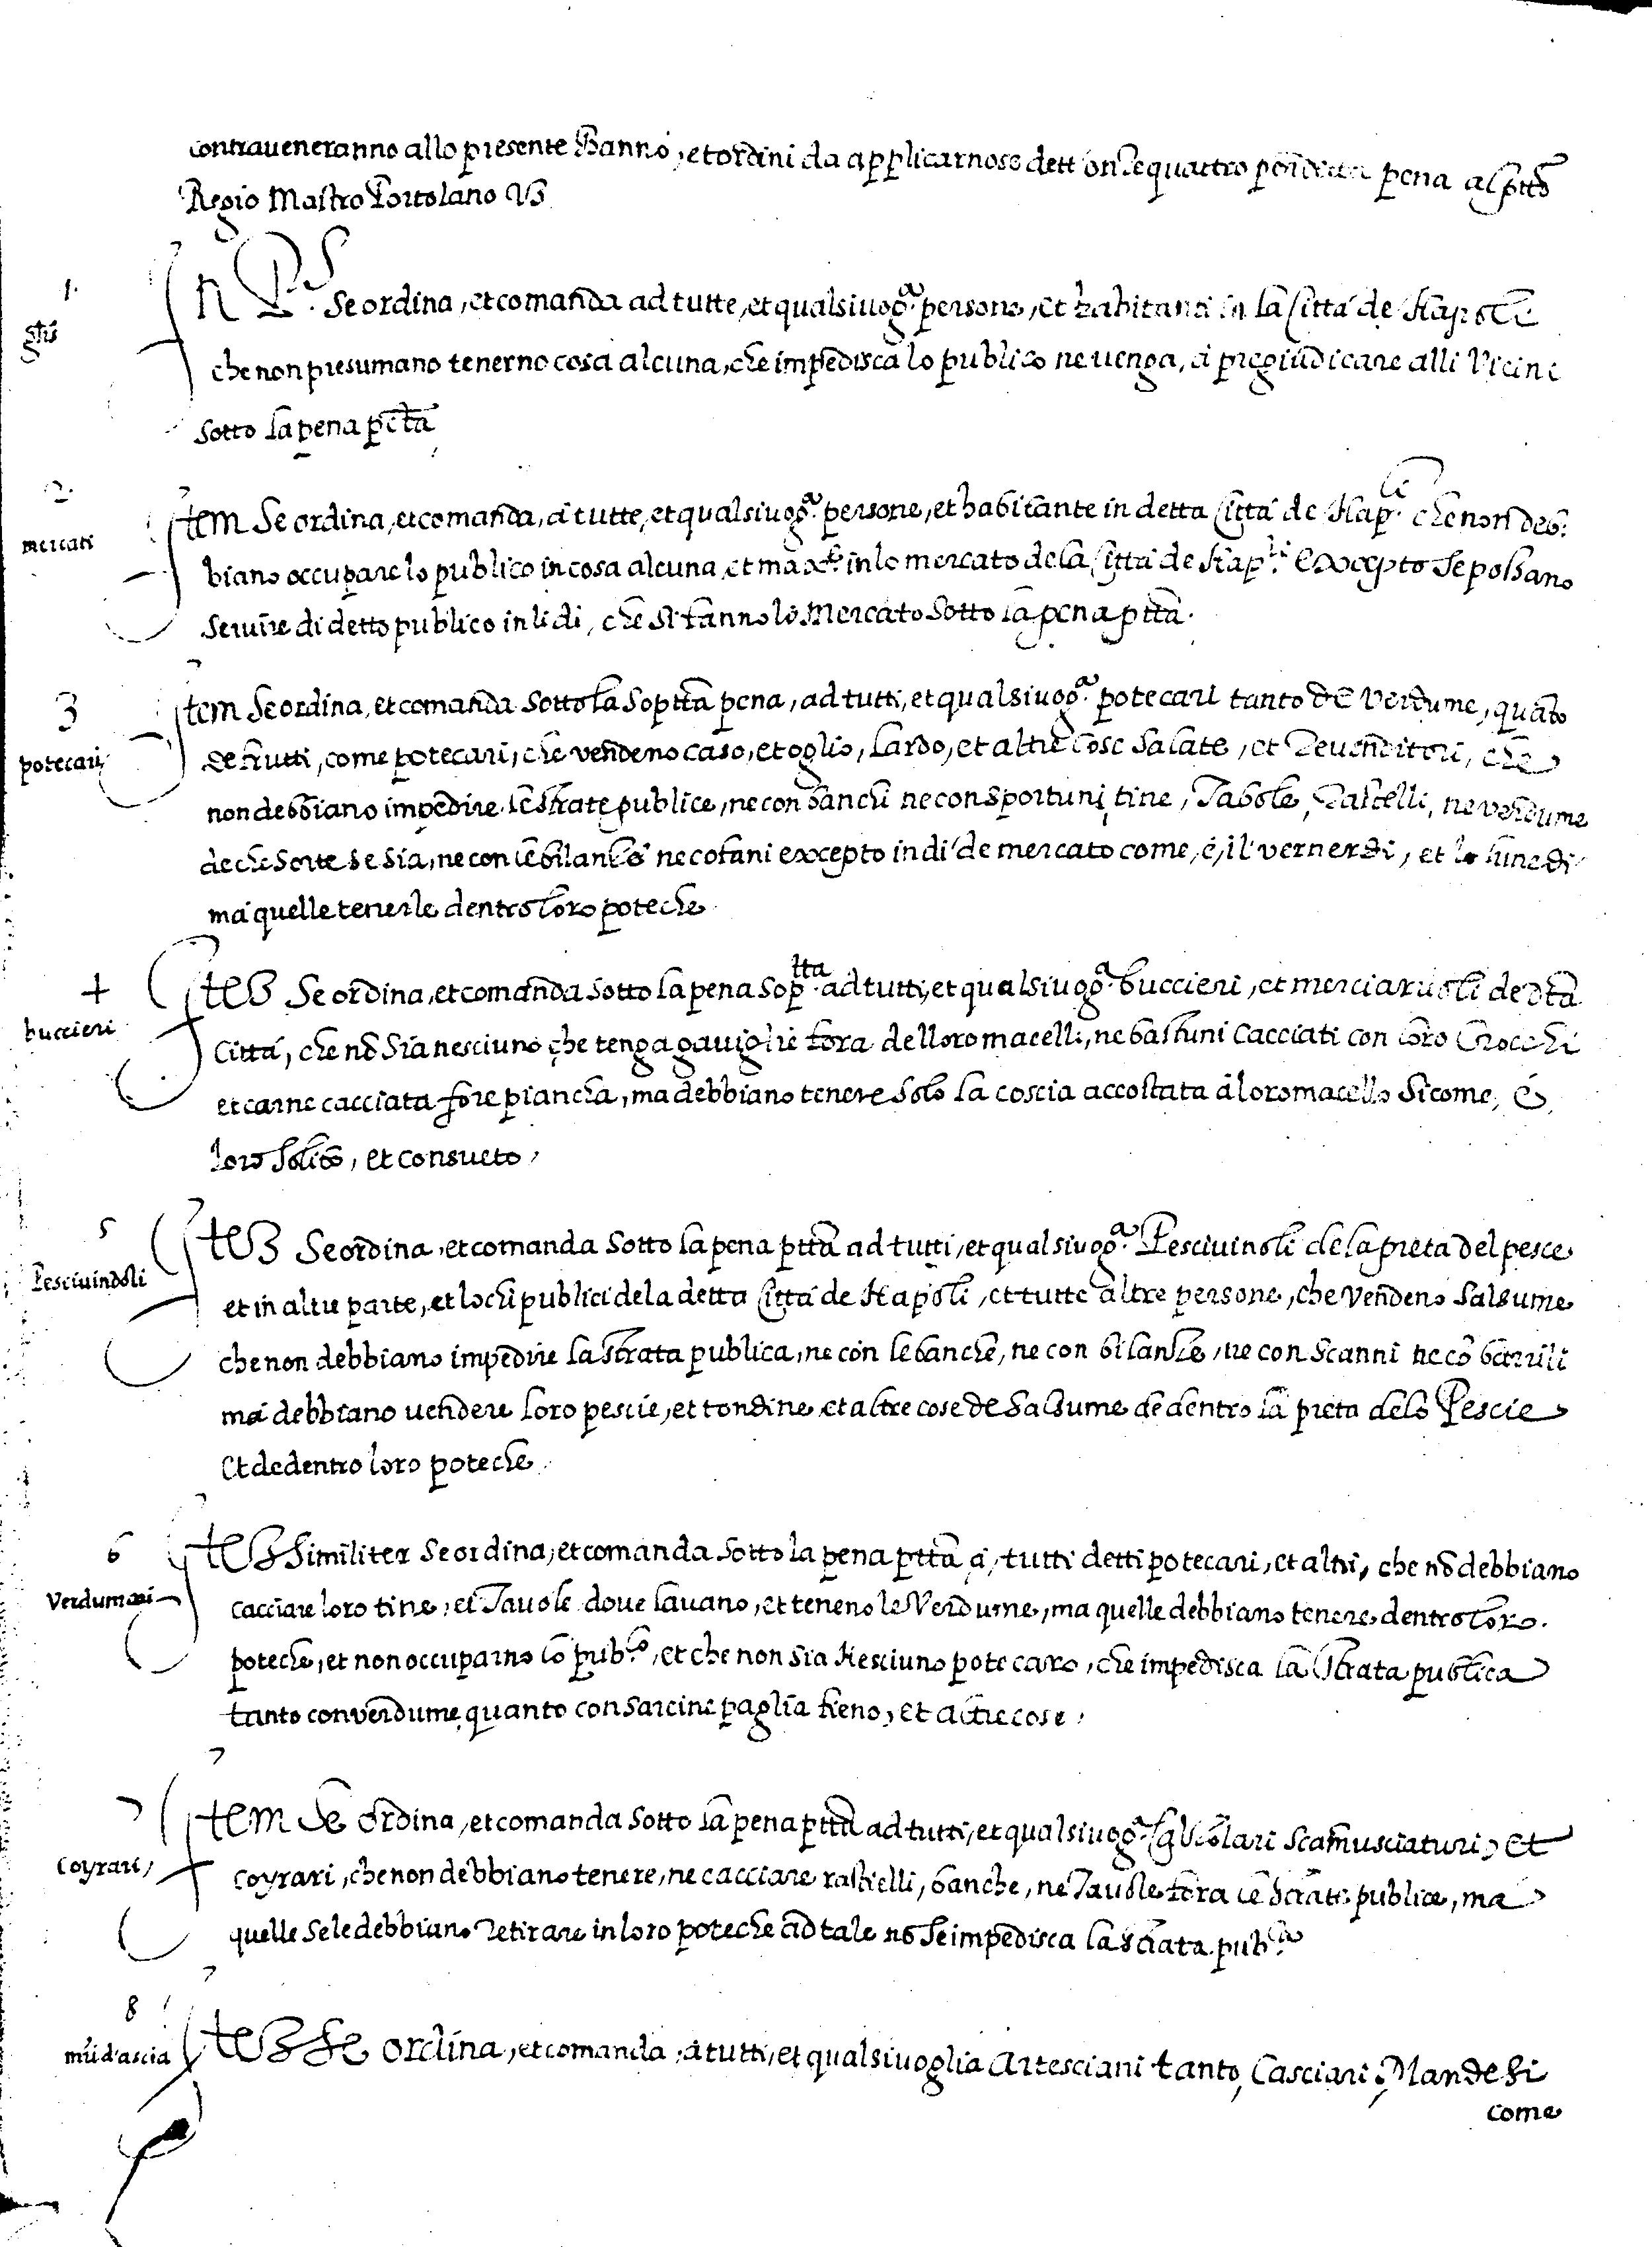 contraveneranno allo presente Banno, et ordini da applicarnose dett'onze quattro pena al p̃tto
Regio Mastro Portolano V3
1.
In P.s Se ordina, et comanda ad tutte, et qualsivog.a persone, et habitanti in la Città de Napoli
che non presumano tenerno cosa alcuna, che impedisca lo publico ne venga, à pregiudicare alli Vicini
sotto la pena p̃cta
2.
mercati
Item Se ordina, et comanda, à tutte, et qualsivog.a persone, et habitante in detta Città de Nap.li che non deb:
biano occupare lo publico in cosa alcuna et max.e in lo mercato de la Città de Nap.li excepto se possano
servire di detto publico in li di, che si fanno lo Mercato sotto la pena p̃tta.
3
potecari
Item Se ordina, et comanda sotto la sop̃tta pena, ad tutti, et qualsivog.a potecari tanto de verdume, quãto
de frutti, come potecari, che vendeno caso, et oglio, lardo, et altre cose salate, et Revenditori, che
non debbiano impedire le strate publice, ne con banchi ne con sportuni, tine, Tabole, ne verdume
de che sorte se sia, ne con le bilanze ne cofani excepto in di de mercato come, è, il vernerdi, et lo lunedi
mà quelle tenerle dentro loro poteche
4
buccieri
Ite3 Se ordina, et comanda sotto la pena sop.tta ad tutti, et qualsivog.a buccieri, et merciaruoli de d̃ta
Città, che nõ sia nesciuno che tenga gaviglie fora delloro macelli, ne bastuni cacciati con loro Crocchi
et carne cacciata fore piancha, ma debbiano tenere solo la coscia accostata à loro macello sicome, è
loro solito, et consueto,
5
Pescivindoli
Ite3 Se ordina, et comanda sotto la pena p̃tta ad tutti, et qualsivog.a Pescivinoli de la preta del pesce
et in altre parte, et lochi publici de la detta Città de Napoli, et tutte altre persone, che vendeno salsume
che non debbiano impedire la strata publica, ne con le banche, ne con bilanze, ne con scanni ne cõ barrili
mà debbiano vendere loro pescie, et tondine et altre cose de salsume de dentro la preta delo Pescie
et dedentro loro poteche
6
Verdumari
Ite3 Similiter se ordina, et comanda sotto la pena p̃tta à, tutti detti potecari, et altri, che nõ debbiano
cacciare loro tine, et Tavole dove lavano, et teneno le Verdume, ma quelle debbiano tenere dentro loro.
poteche, et non occuparno lo pub.co, et che non sia Nesciuno potecaro, che impedisca la strata publica
tanto con verdume, quanto con sarcine paglia fieno, et altre cose,
7
coyrari,
Item Se ordina, et comanda sotto la pena p̃tta ad tutti, et qualsivog.a scamusciaturi, et
coyrari, che non debbiano tenere, ne cacciare rastielli, banche, ne Tavole fora le strate publice, ma
quelle se le debbiano retirare in loro poteche ad tale nõ se impedisca la strata pub.ca
8
m̃ri d'ascia
Ite3 Se ordina, et comanda, à tutti, et qualsivoglia Artesciani tanto, Casciari, Mandesi
come